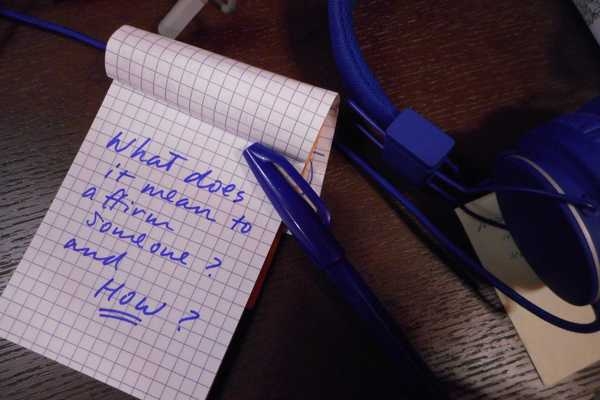 What does
it mean to
affirm
Someone?
and
How?